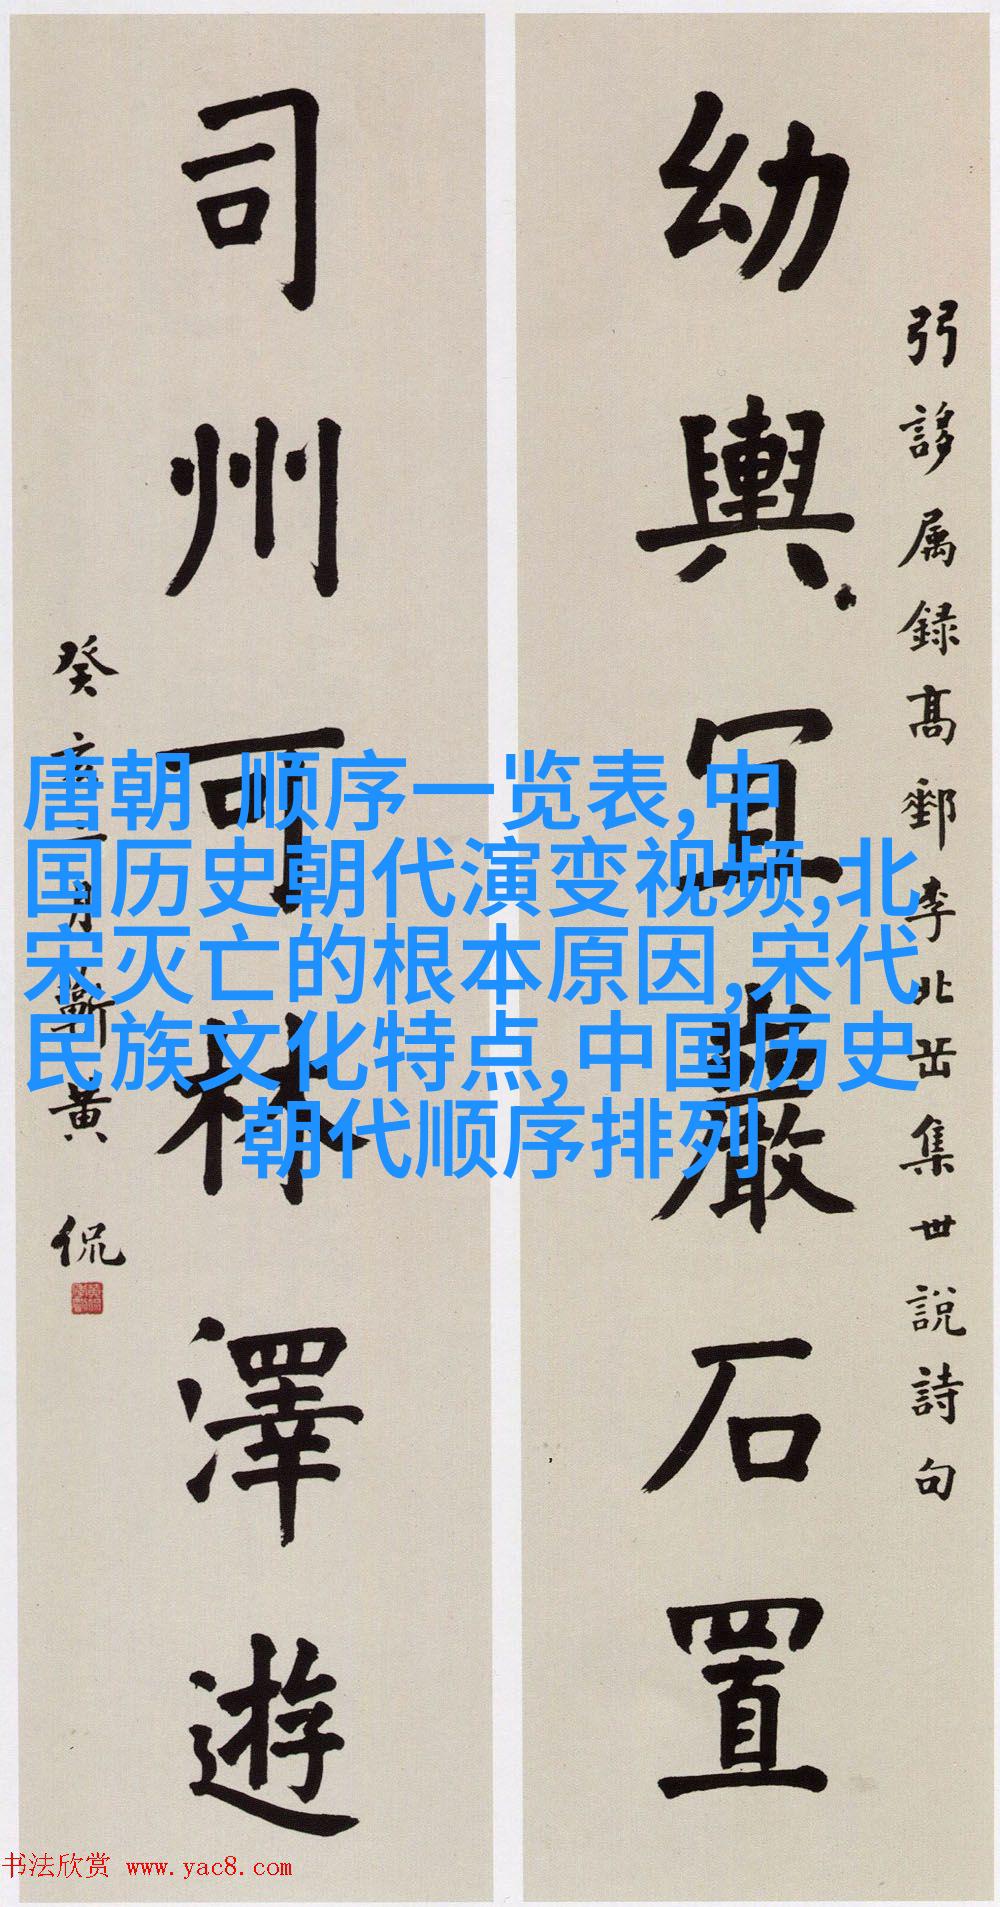 弜誃属録高郵李北苗集世說詩句
幼輿宜置嚴石
司州可林澤遊
癸亥二月蘄黄侃
唐朝 顺序一览表,中
国历史朝代演变视频,北
宋灭亡的根本原因,宋代
民族文化特点,中国历史
朝代顺序排列
书法欣赏 www.yac8.com